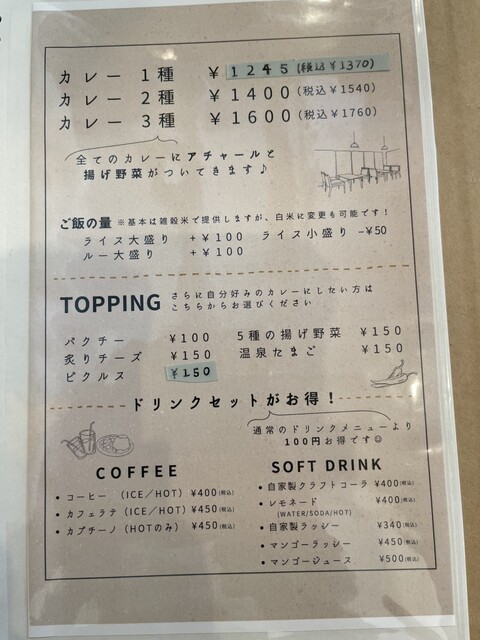 カレー 1種 ¥1245(税込¥1370)
カレー 2種 ¥1400(税込¥1540)
カレー 3種 ¥1600(税込¥1760)
全てのカレーにアチャールと
揚げ野菜がついてきます♪
ご飯の量 ※基本は雑穀米で提供しますが、白米に変更も可能です!
ライス大盛り +¥100 ライス小盛り -¥50
ルー大盛り +¥100
TOPPING さらに自分好みのカレーにしたい方は
こちらからお選びください
パクチー ¥100 5種の揚げ野菜 ¥150
炙りチーズ ¥150 温泉たまご ¥150
ピクルス ¥150
ドリンクセットがお得!
通常のドリンクメニューより
100円お得です☺
COFFEE
• コーヒー (ICE/HOT) ¥400(税込)
• カフェラテ (ICE/HOT) ¥450(税込)
• カプチーノ (HOTのみ) ¥450(税込)
SOFT DRINK
• 自家製クラフトコーラ ¥400(税込)
• レモネード ¥400(税込)
(WATER/SODA/HOT)
• 自家製ラッシー ¥340(税込)
• マンゴーラッシー ¥450(税込)
• マンゴージュース ¥500(税込)